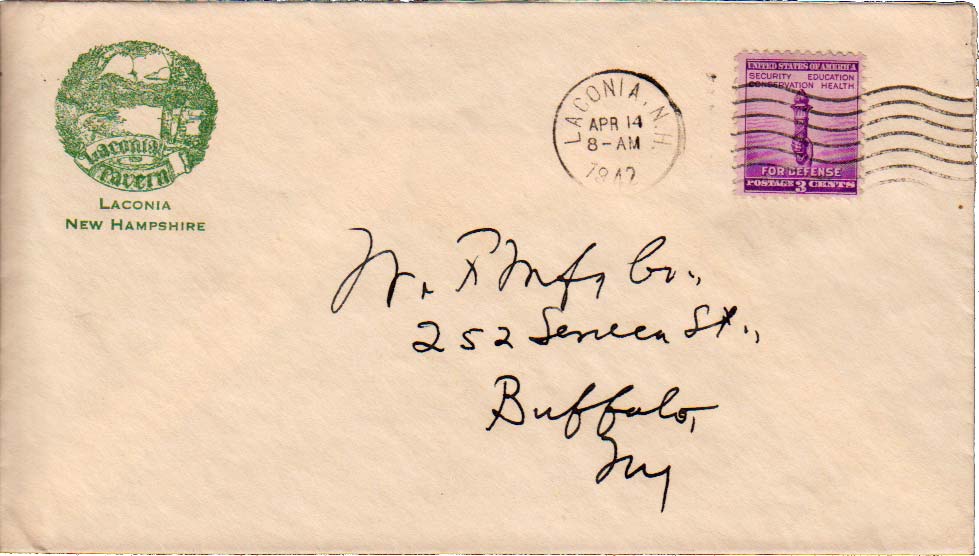 Laconia
Tavern
LACONIA
NEW HAMPSHIRE
LACONIA, N.H.
APR 14
8-AM
1942
UNITED STATES OF AMERICA
SECURITY EDUCATION
CONSERVATION HEALTH
FOR DEFENSE
POSTAGE 3 CENTS
Mfg Co.,
252 Seneca St.,
Buffalo,
NY